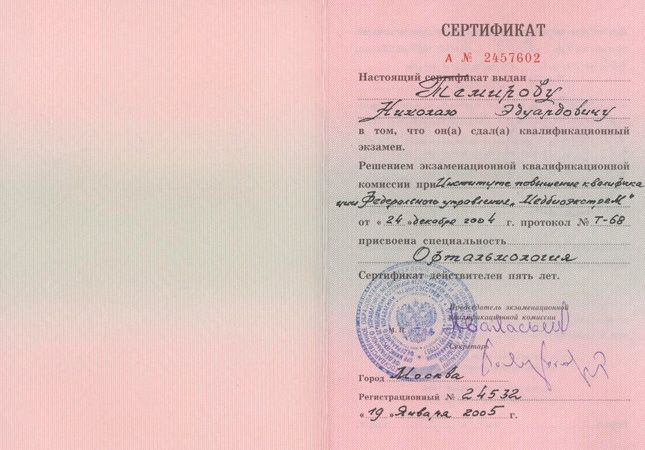 СЕРТИФИКАТ
А № 2457602
Настоящий сертификат выдан
Темирову
Николаю Эдуардовичу
в том, что он(а) сдал(а) квалификационный
экзамен.
Решением экзаменационной квалификационной
комиссии при Институте повышение квалифика
ции Федерального управление „Медбиоэкстрем"
от « 24 » декабря 2004 г. протокол № Т-68
присвоена специальность
Офтальмология
Сертификат действителен пять лет.
Председатель экзаменационной
квалификационной комиссии
М. П.
Секретарь
Город Москва
Регистрационный № 24532
« 19 » Января 2005 г.